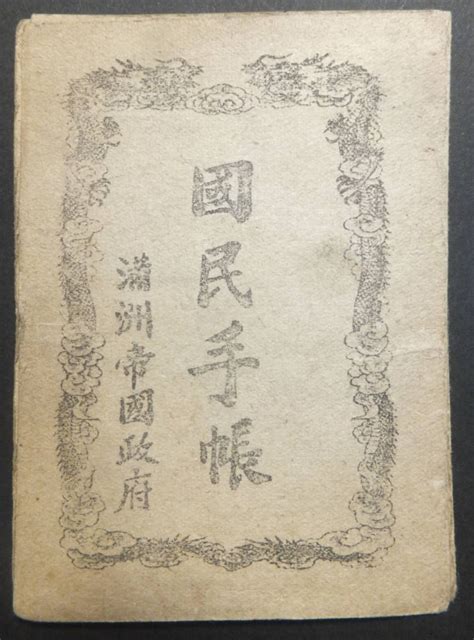 國民手帳
滿洲帝國政府